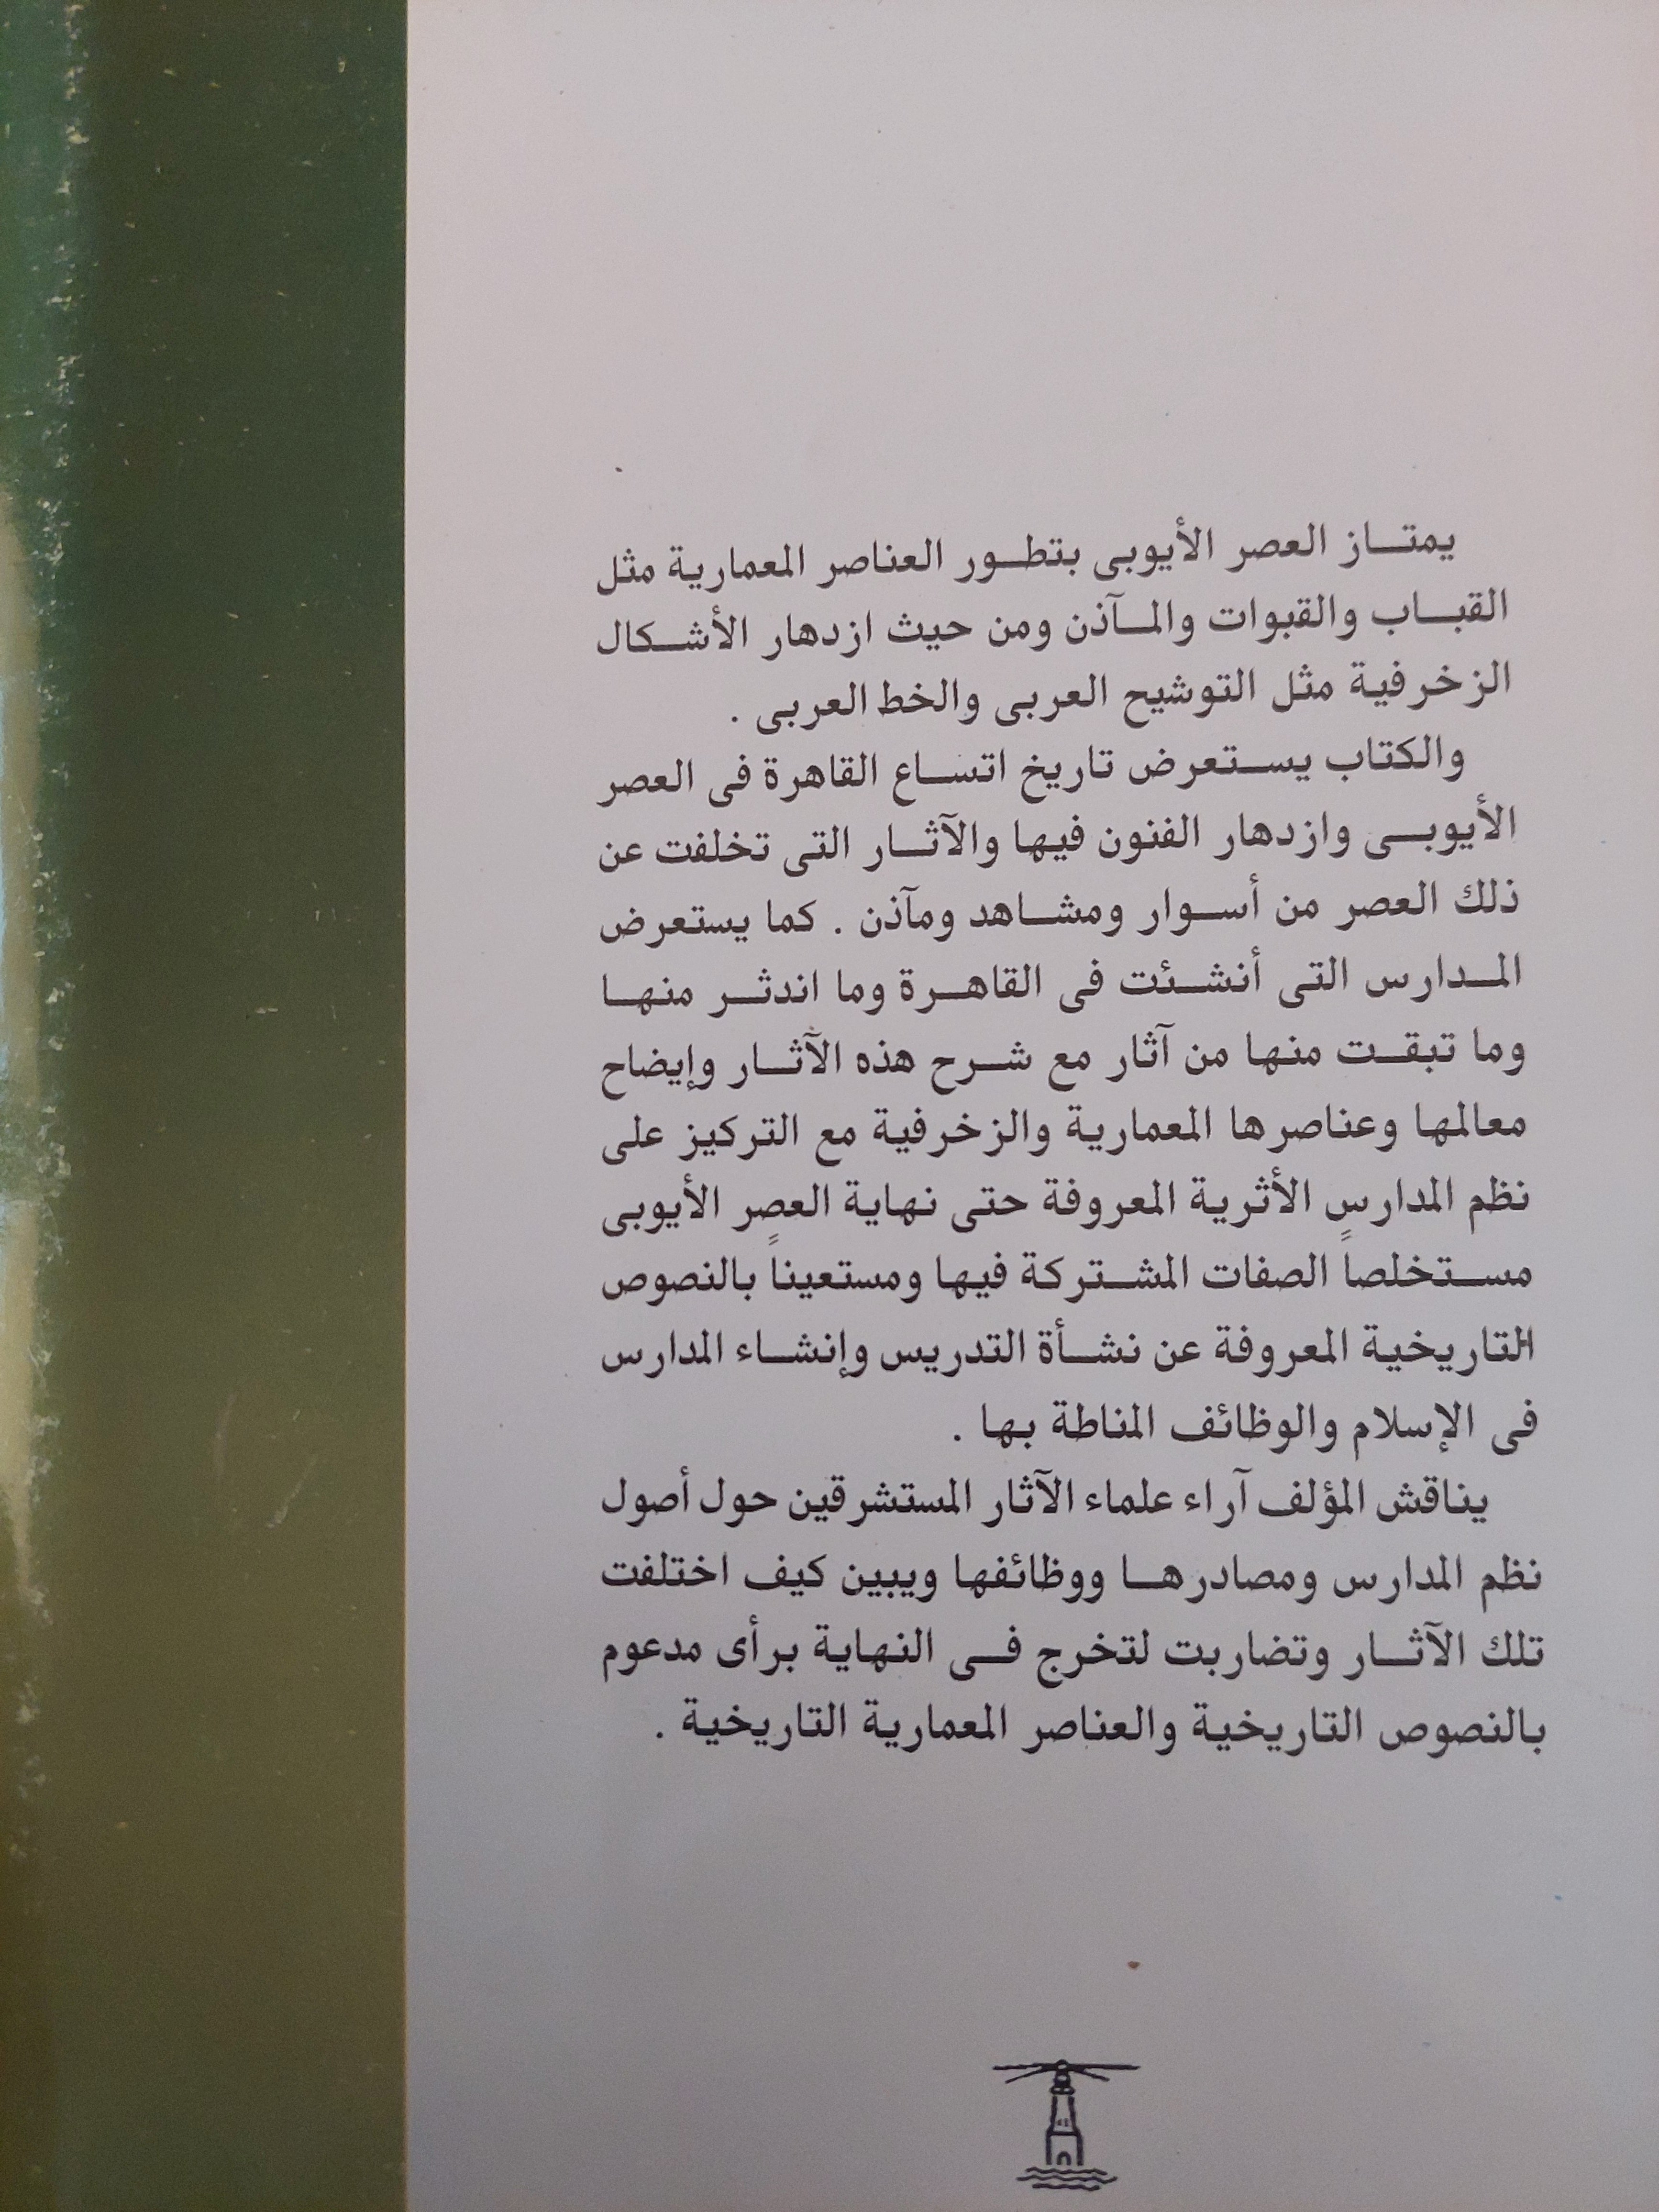 يمتاز العصر الأيوبى بتطور العناصر المعمارية مثل
القباب والقبوات والمآذن ومن حيث ازدهار الأشكال
الزخرفية مثل التوشيح العربى والخط العربى .
والكتاب يستعرض تاريخ اتساع القاهرة فى العصر
الأيوبى وازدهار الفنون فيها والآثار التى تخلفت عن
ذلك العصر من أسوار ومشاهد ومآذن . كما يستعرض
المدارس التى أنشئت فى القاهرة وما اندثر منها
وما تبقت منها من آثار مع شرح هذه الآثار وإيضاح
معالمها وعناصرها المعمارية والزخرفية مع التركيز على
نظم المدارس الأثرية المعروفة حتى نهاية العصر الأيوبى
مستخلصاً الصفات المشتركة فيها ومستعيناً بالنصوص
التاريخية المعروفة عن نشأة التدريس وإنشاء المدارس
فى الإسلام والوظائف المناطة بها .
يناقش المؤلف آراء علماء الآثار المستشرقين حول أصول
نظم المدارس ومصادرها ووظائفها ويبين كيف اختلفت
تلك الآثار وتضاربت لتخرج فى النهاية برأى مدعوم
بالنصوص التاريخية والعناصر المعمارية التاريخية .